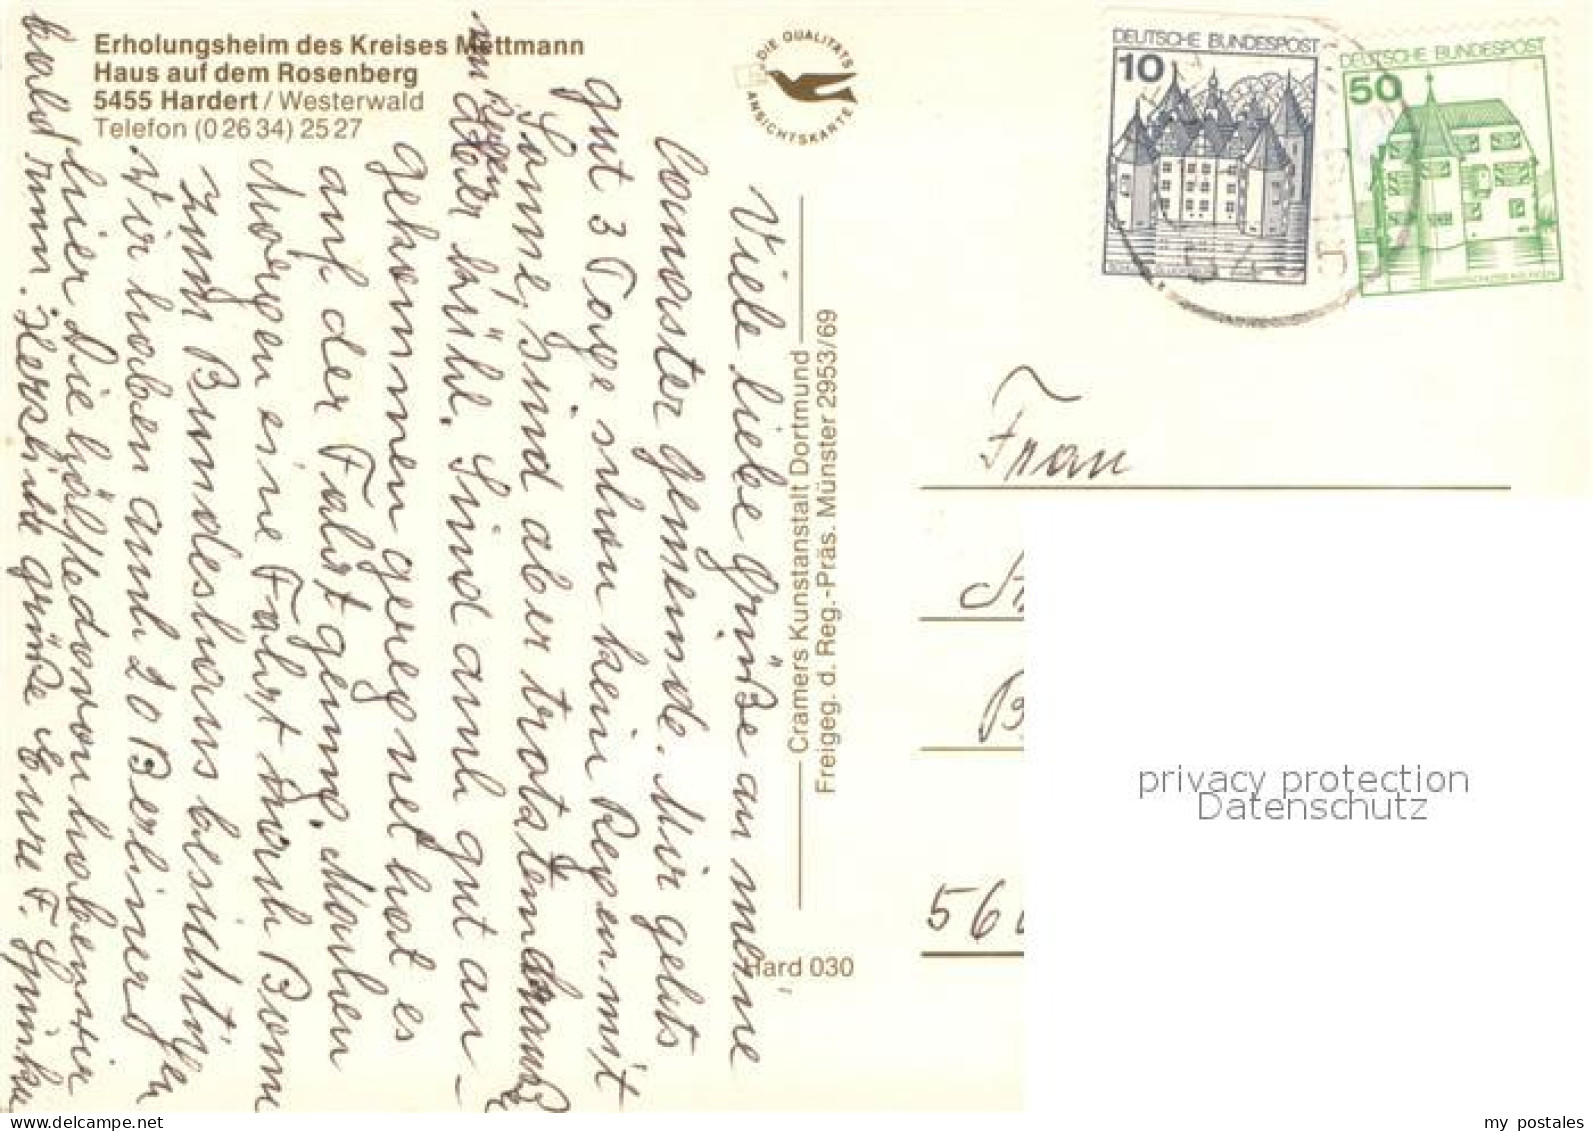 Erholungsheim des Kreises Mettmann
Haus auf dem Rosenberg
5455 Hardert / Westerwald
Telefon (0 26 34) 25 27
DIE QUALITÄTS
ANSICHTSKARTE
DEUTSCHE BUNDESPOST
10
DEUTSCHE BUNDESPOST
50
Viele liebe Grüße an meine
Canaster gemeinde. Mir gehts
gut 3 Tage schon kein Regen mit
Sonne, sind aber trotzdem
im Regen
aber kühl. Sind auch gut an-
gekommen geregnet hat es
auf der Fahrt genug. Machen
Morgen eine Fahrt nach Bonn
zum Bundeshaus besichtigen
Wir haben auch 20 Berliner
hier Die hälfte davon haben wir
bald rum. Herzliche grüße Eure F.
Cramers Kunstanstalt Dortmund
Freigeg. d. Reg.-Präs. Münster 2953/69
Hard 030
Frau
B
56
privacy protection
Datenschutz
my postales
www.delcampe.net